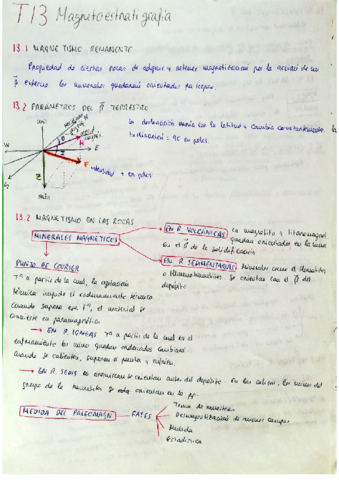 T13 Magnetoestratigrafía
13.1 MAGNETISMO REMANENTE
Propiedad de ciertas rocas de adquirir y retener magnetización por la acción de un
B externo. Los minerales quedarán orientados
13.2 PARAMETROS DEL B TERRESTRE
La declinación varía con la latitud + cambia constantemente
Inclinación: 90 en polos.
W
E
D
H
I
Z
F
intensidad + en polos
13.2 MAGNETISMO EN LAS ROCAS
MINERALES MAGNÉTICOS
EN R. VOLCÁNICAS la magnetita y titanomagnet
quedan orientados en la lava
en el B de la solidificación
EN R. SEDIMENTARIAS Minerales como el
se orientan con el B del
depósito
PUNTO DE
Tª a partir de la cual, la agitación
térmica impide el ordenamiento
Cuando supera esa Tª, el material se
convierte en paramagnético.
EN R. IGNEAS Tª a partir de la cual en el
enfriamiento los mine quedan ordenados
Cuando se calientan, superan el punto y
EN R. SEDIS se orientan antes del depósito. En las calizas, los mine del
grupo de la magnetita se orientan en la
MEDIDA DEL PALEOMAGN
FASES
Toma de muestras
Desmagnetización de nuevos campos
Medida
Estadística